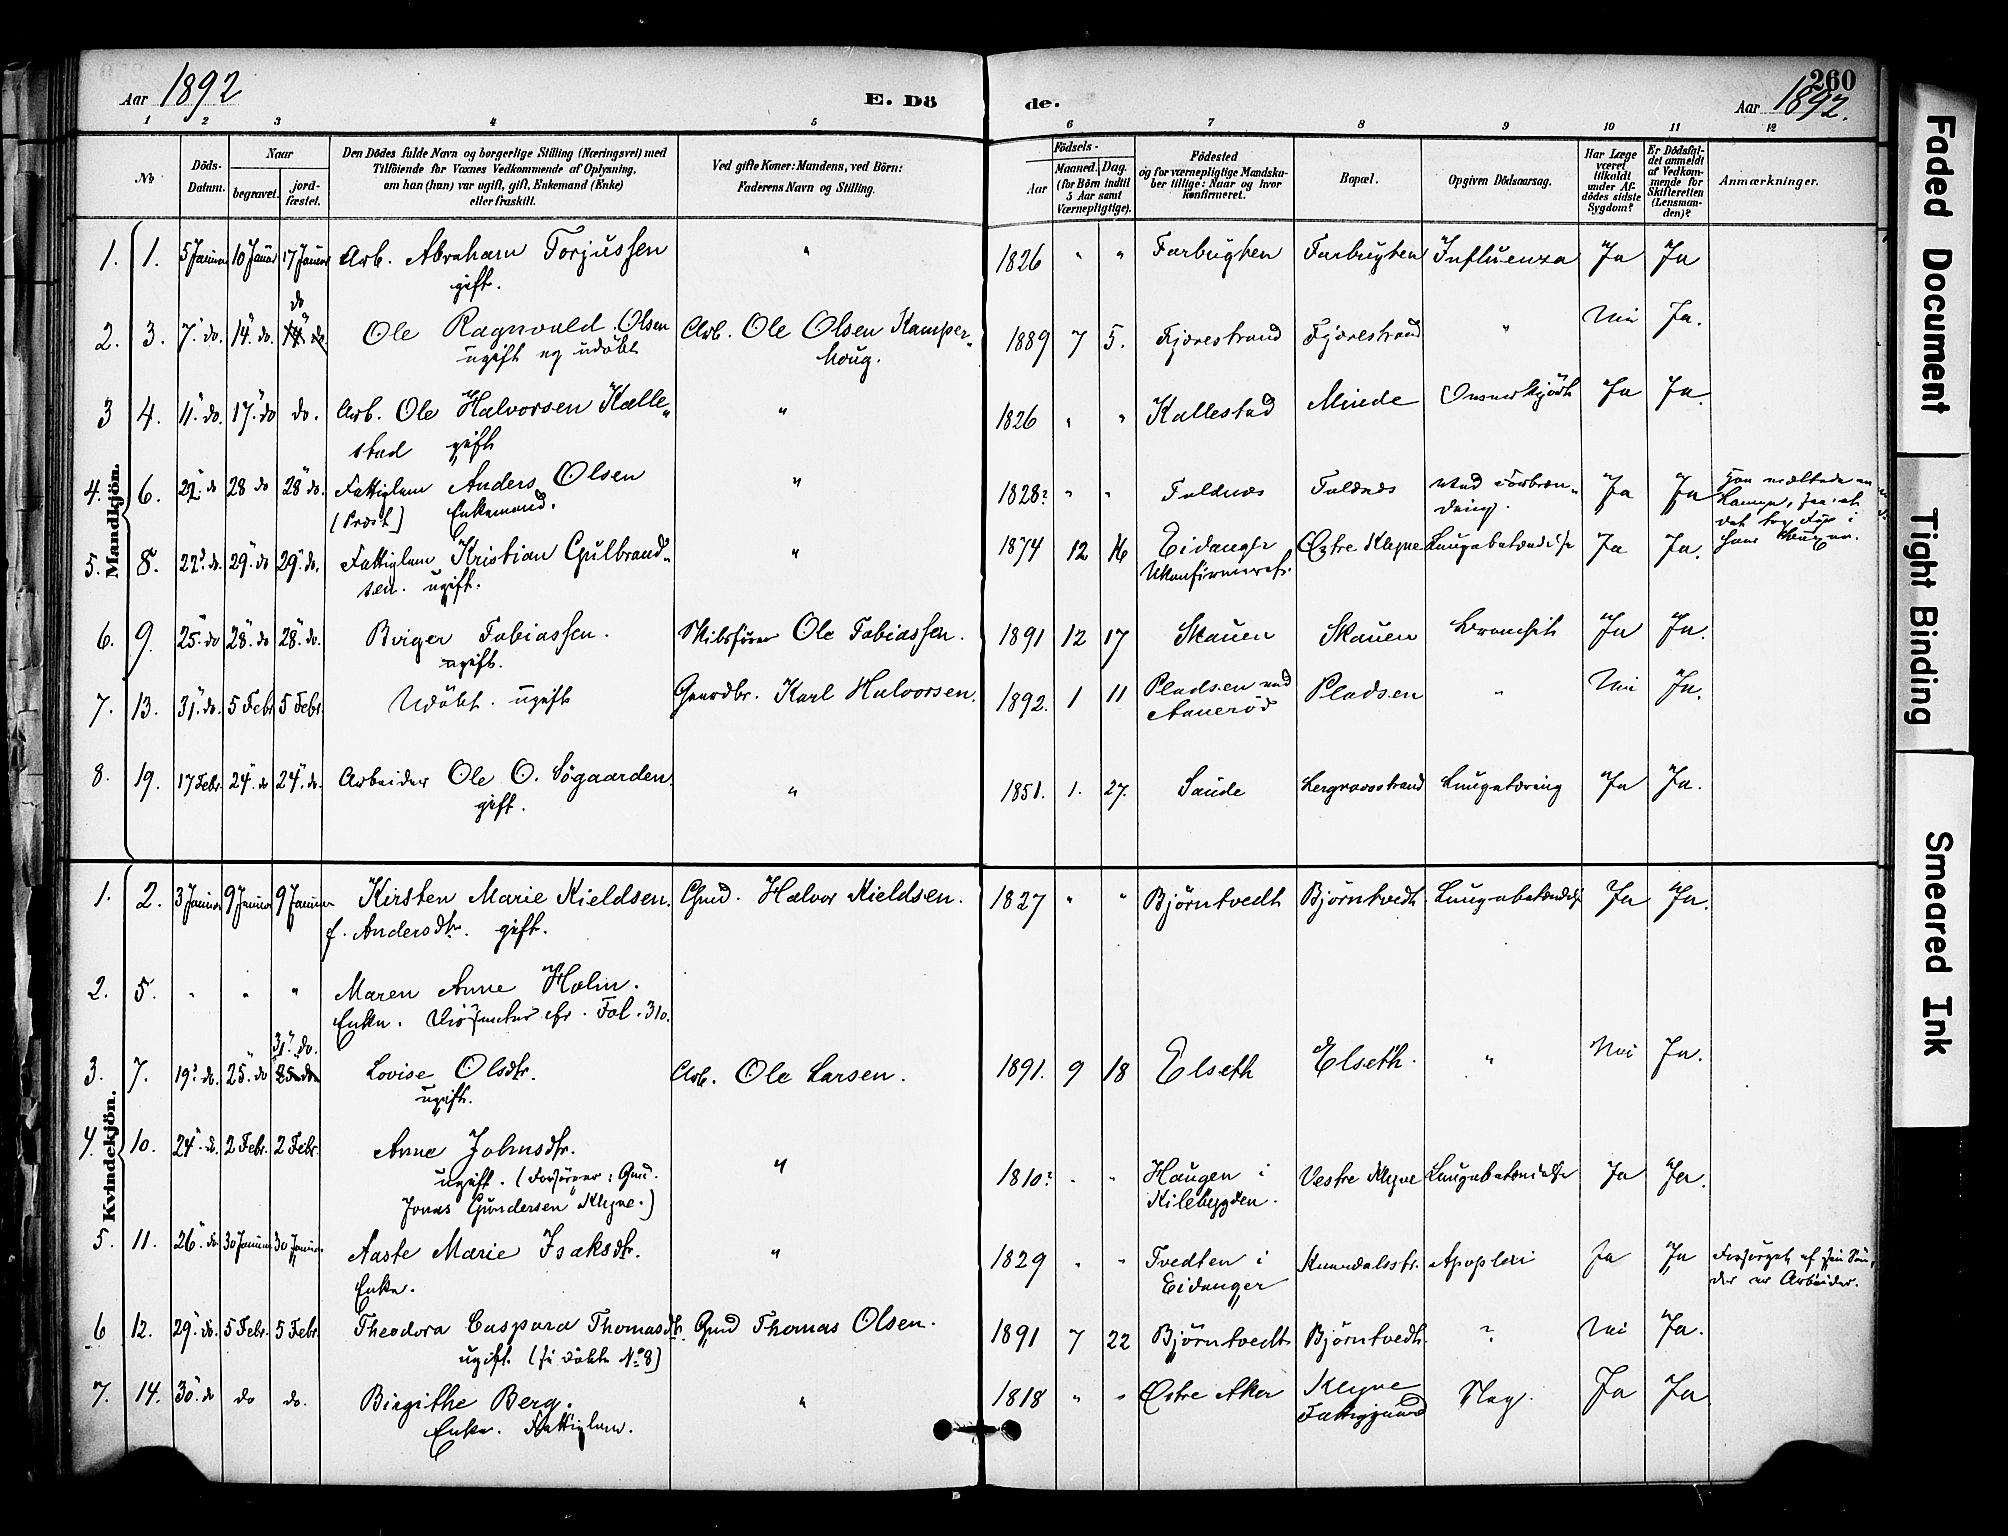 Aar 1892
E. Dö
de.
260
Aar 1892.
1 2 3 4 5 6 7 8 9 10 11 12
No
Döds-Datum.
Naar
begravet.
jord-fæstet.
Den Dödes fulde Navn og borgerlige Stilling (Næringsvei) med
Tilföiende for Voxnes Vedkommende af Oplysning,
om han (hun) var ugift, gift, Enkemand (Enke)
eller fraskilt.
Ved gifte Koner: Mandens, ved Börn:
Faderens Navn og Stilling.
Födsels-
Aar
Maaned. Dag.
(for Börn indtil 5 Aar samt Værnepligtige).
Födested
og for værnepligtige Mandska-
ber tillige: Naar og hvor
konfirmeret.
Bopæl.
Opgiven Dödsaarsag.
Har Læge været tilkaldt under Afdödes sidste Sygdom?
Er Dödsfaldet anmeldt af Vedkommende for Skifteretten (Lensmanden)?
Anmærkninger.
Mandkjön.
1. 1. 5 Januar 10 Januar 17 Januar Arb. Abraham Torjussen " 1826 " " Furbugten Furbugten Influenza Ja Ja
gift.
do
2. 3. 7. do. 14. do. 14 do Ole Ragnvald Olsen Arb. Ole Olsen Kamper- 1889 7 5. Fjærestrand Fjærestrand " Nei Ja.
ugift og udöbt houg.
3 4. 11. do. 17. do do. Arb. Ole Halvorsen Kalle- " 1826 " " Kallestad Miede Ja Ja.
stad gift
4. 6. 22. do 28 do 28 do. Fattiglem Anders Olsen " 1828? " " Foldnæs Foldnæs ved Forbræn- Ja Ja Han væltede en
(Præst) Enkemand. ding. Lampe, saa at
det tog Fyr i
hans
5. 8. 22. do. 29. do 29. do. Fattiglem Kristian Gulbrand- " 1874 12 16 Eidanger Østre Klyve Lungebetændelse Ja Ja.
sen. ugift. Ukonfirmeret.
6. 9. 25. do 28. do 28. do. Birger Tobiassen. Skibsfører Ole Tobiassen. 1891 12 17 Skauen Skauen Bronchit Ja Ja.
ugift.
7. 13. 31. do. 5 Febr 5 Febr. Udöbt. ugift Gaardbr. Karl Halvorsen. 1892. 1 11 Pladsen ved Pladsen " Nei Ja.
Aanerød
8. 19. 17 Febr. 24. do 24. do. Arbeider Ole O. Søgaarden. " 1851. 1. 27. Saude Lergravsstrand Lungetæring Ja Ja.
gift.
Kvindekjön.
1. 2. 3 Januar 9 Januar 9 Januar Kirsten Marie Kieldsen. Gmd. Halvor Kieldsen. 1827 " " Bjørntvedt Bjørntvedt Lungebetændelse Ja Ja.
f. Andersdtr. gift.
2. 5. " " " Maren Anne Holm.
Enke. Fol. 310.
31. do.
3. 7. 19. do. 25. do Lovise Olsdtr. Arb. Ole Larsen. 1891. 9 18 Elseth Elseth. " Nei Ja.
ugift.
4. 10. 24. do. 2 Febr. 2 Febr. Anne Johnsdtr. " 1810? " " Haugen i Vestre Klyve Lungebetændelse Ja Ja.
ugift. (Forsørger: Gmd. Kilebygden.
Jonas Gundersen Klyve.)
5. 11. 26. do 30 Januar 30 Januar Aaste Marie Isaksdtr. " 1829 " " Tvedten i Apoplexi Ja Ja Forsørget af sin Søn,
Enke. Eidanger der er Arbeider.
6 12. 29. do. 5 Febr. 5 Febr. Theodora Caspara Thomasdtr. Gmd Thomas Olsen. 1891 7 22 Bjørntvedt Bjørntvedt. " Nei Ja.
ugift. (se døbte No 8)
7. 14. 30. do do do. Birgithe Berg. " 1818 " " Østre Aker Klyve Slag. Ja Ja
Enke. Fattiglem. Fattiggaard
Faded Document
Tight Binding
Smeared Ink